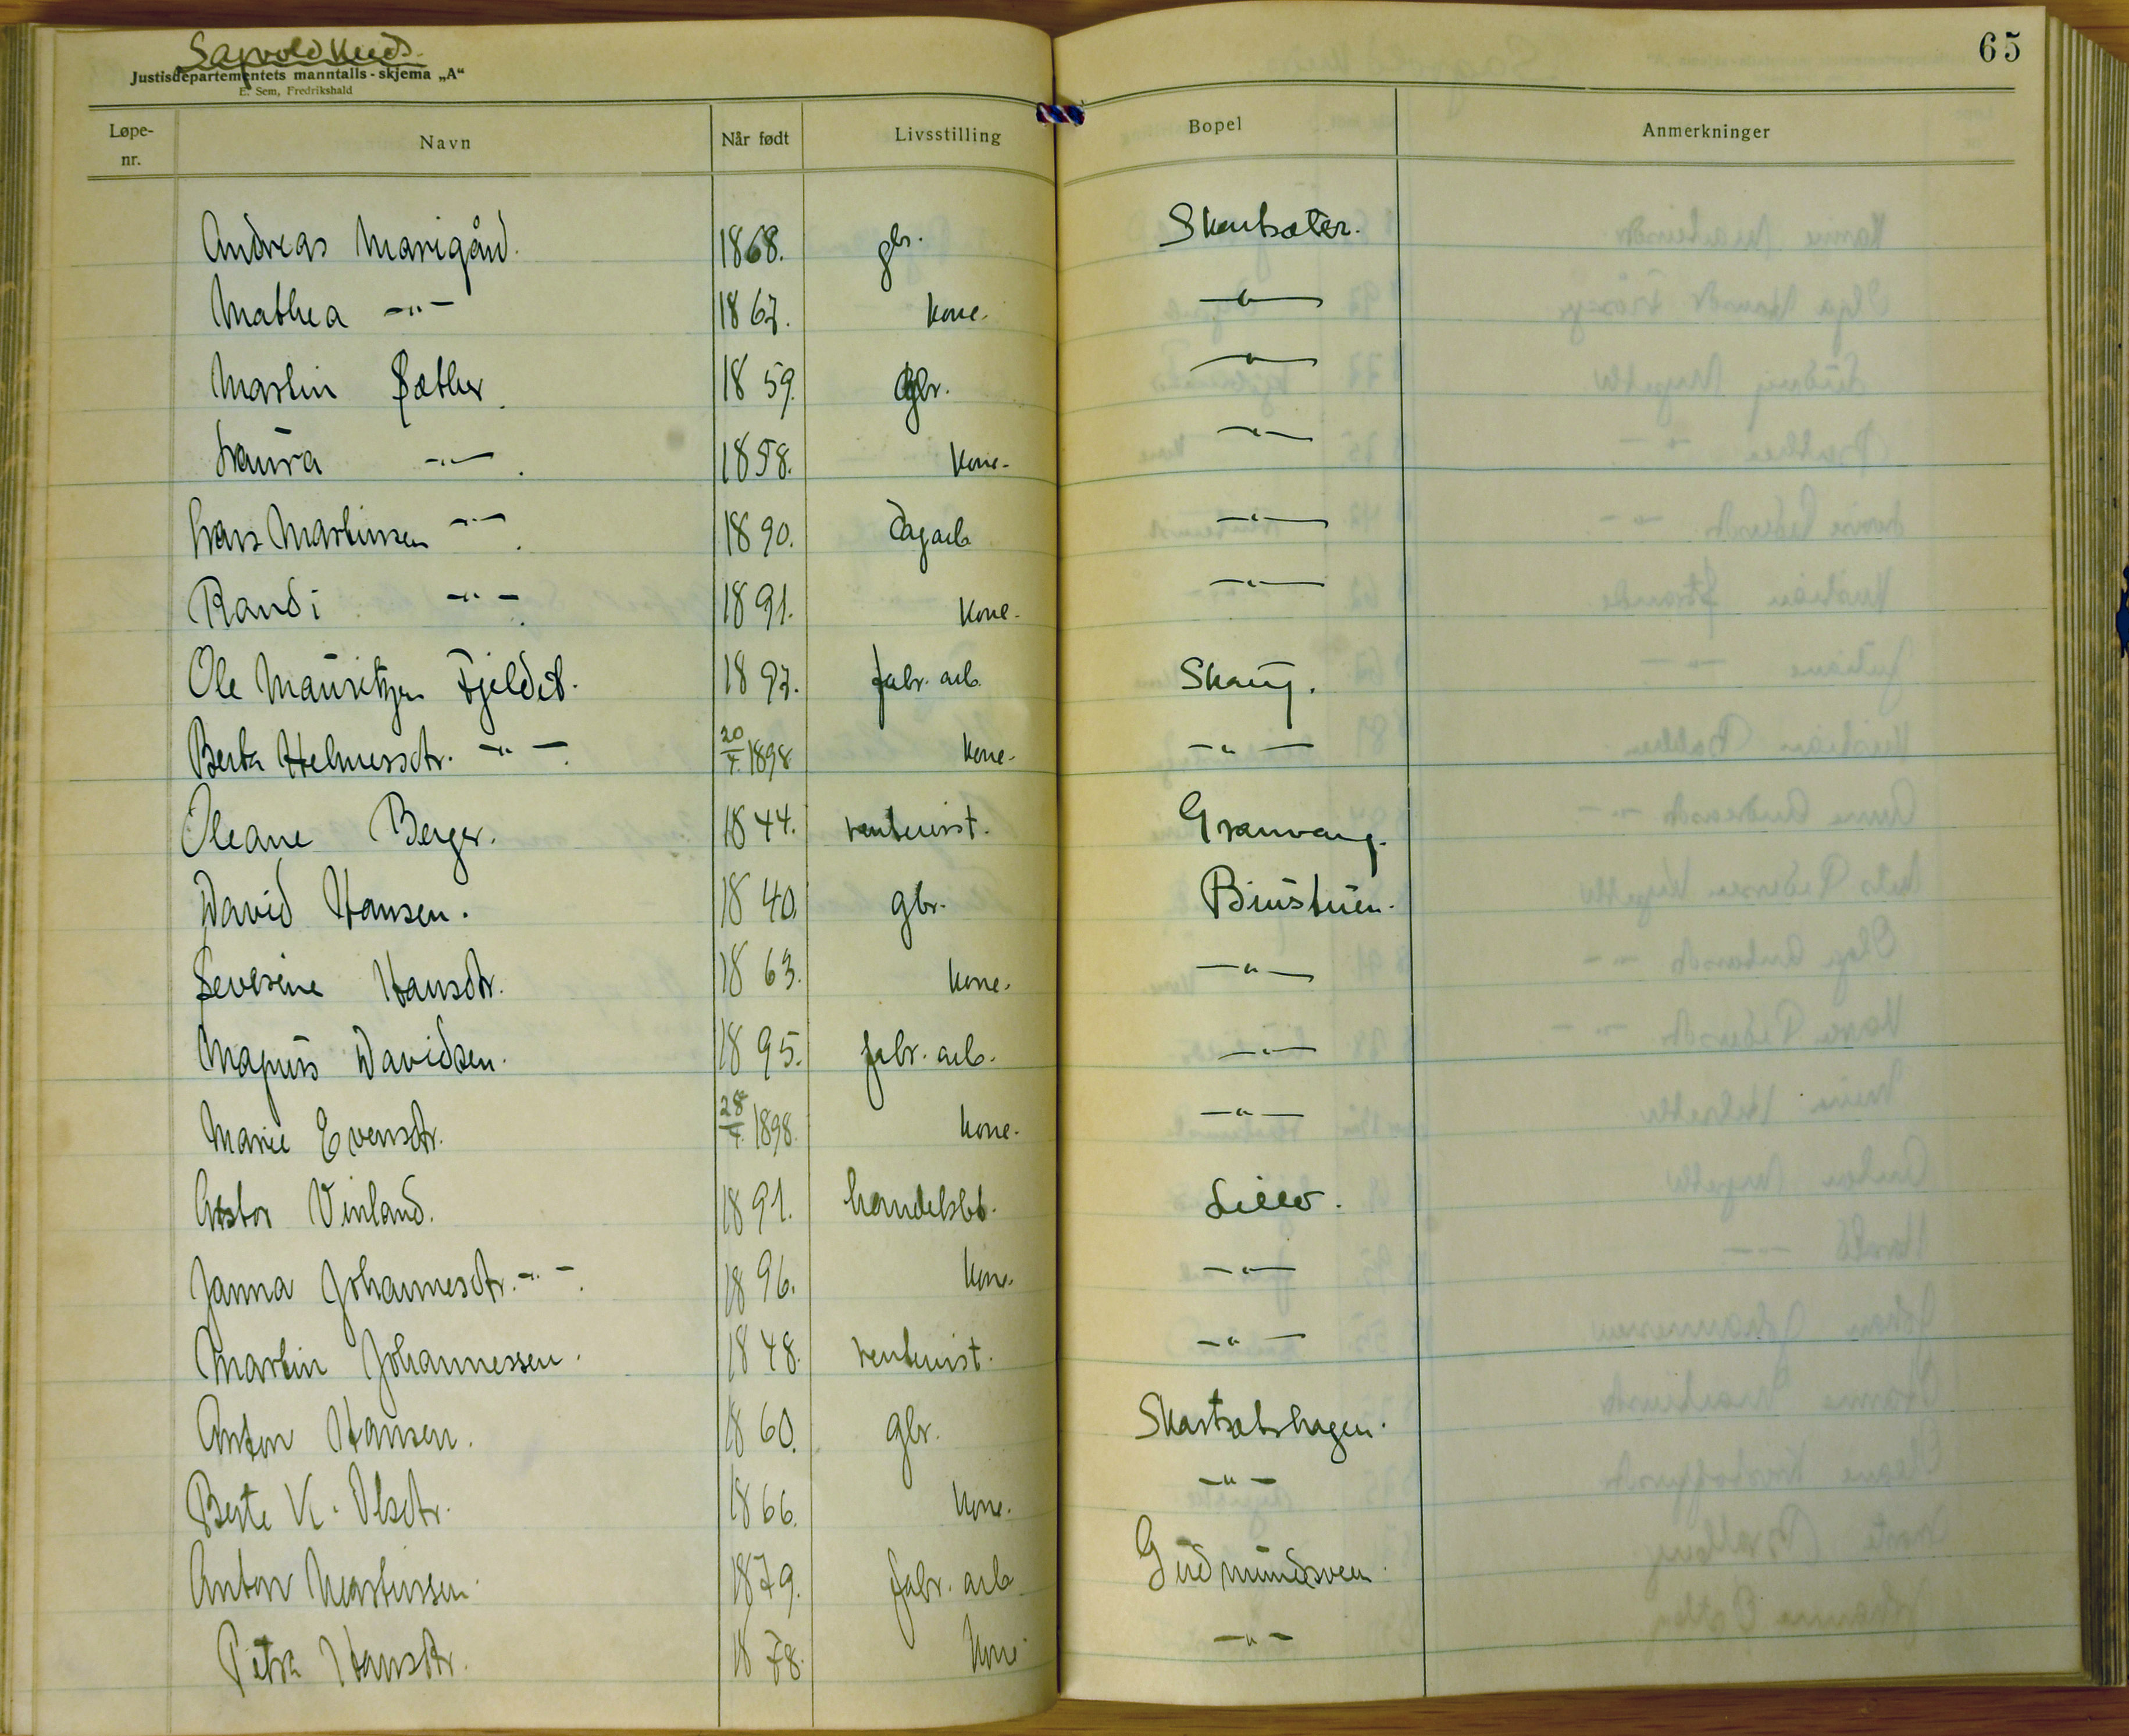 Sagvold Kreds.
Justisdepartementets manntalls-skjema „A“
E. Sem, Fredrikshald
65
Løpe-nr. Navn Når født Livsstilling Bopel Anmerkninger
Andreas Marigård. 1868. gbr. Skartsæter.
Mathea -"- 1867. kone. -"-
Martin Sæther. 1859. gbr. -"-
Laura -"-. 1858. kone. -"-
Lars Martinsen -"-. 1890. dagarb -"-
Randi -"-. 1891. kone. -"-
Ole Mauritzen Fjeldet. 1897. fabr. arb. Skaug.
Berta Helmersdtr. -"-. 20/7. 1898 kone. -"-
Oleane Berger. 1844. rentenist. Granvang.
David Hansen. 1840. gbr.
Severine Hansdtr. 1863. kone. -"-
Magnus Davidsen. 1895. fabr. arb. -"-
Marie Evensdtr. 28/7. 1898. kone. -"-
Astor Vinland. 1891. handelsb. Lillo.
Janna Johannesdtr. -"-. 1896. kone. -"-
Martin Johannessen. 1848. rentenist. -"-
Anton Hansen. 1860. gbr. Skartsæthagen.
Berte K. Olsdtr. 1866. kone. -"-
Anton Martinsen. 1879. fabr. arb. Gudmundsveen.
Petra Hansdtr. 1878. kone -"-